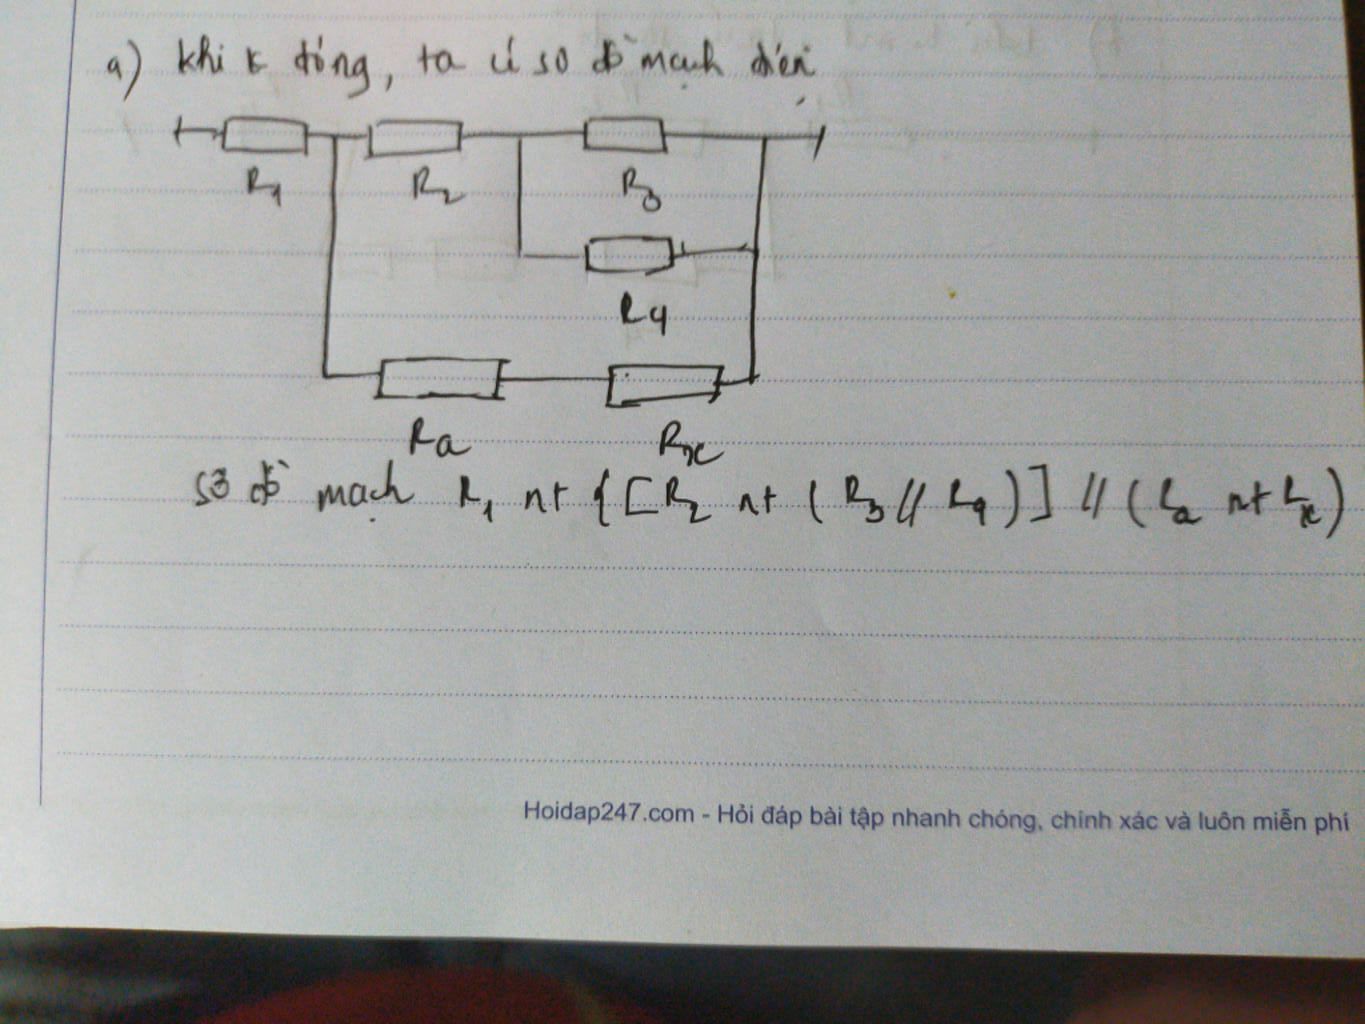 a) khi k đóng, ta có sơ đồ mạch điện
R1 R2 R3
R4
Ra Rx
sơ đồ mạch R1 nt { [ R2 nt ( R3 // R4 ) ] // ( Ra nt Rx )
Hoidap247.com - Hỏi đáp bài tập nhanh chóng, chính xác và luôn miễn phí